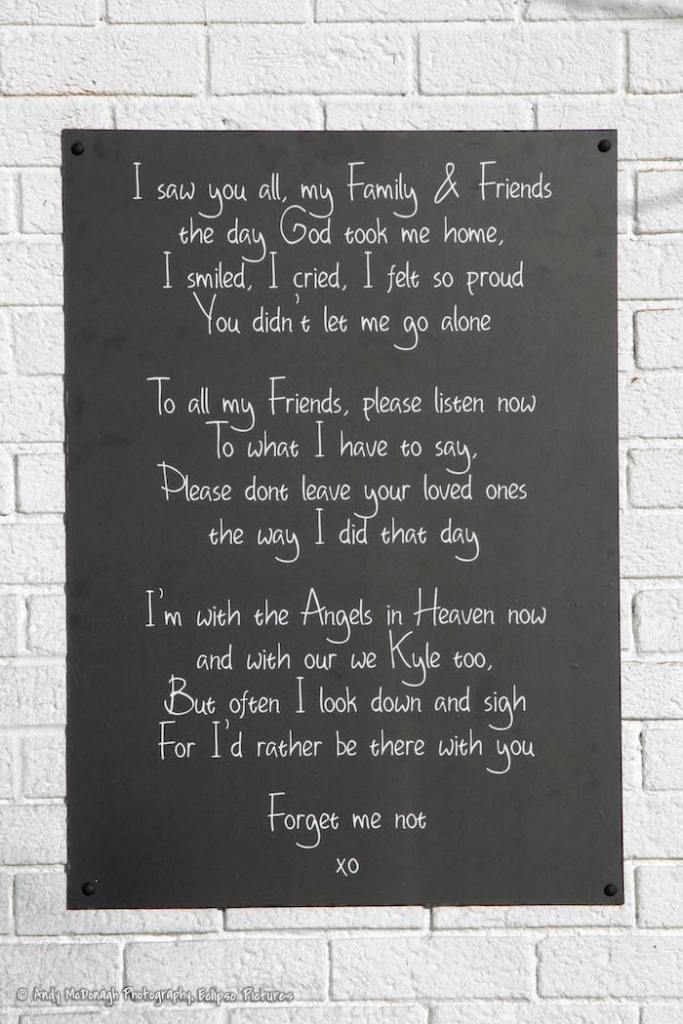 I saw you all, my Family & Friends
the day God took me home,
I smiled, I cried, I felt so proud
You didn't let me go alone
To all my Friends, please listen now
To what I have to say,
Please dont leave your loved ones
the way I did that day
I'm with the Angels in Heaven now
and with our we Kyle too,
But often I look down and sigh
For I'd rather be there with you
Forget me not
xo
© Andy McDonagh Photography, Eclipso Pictures